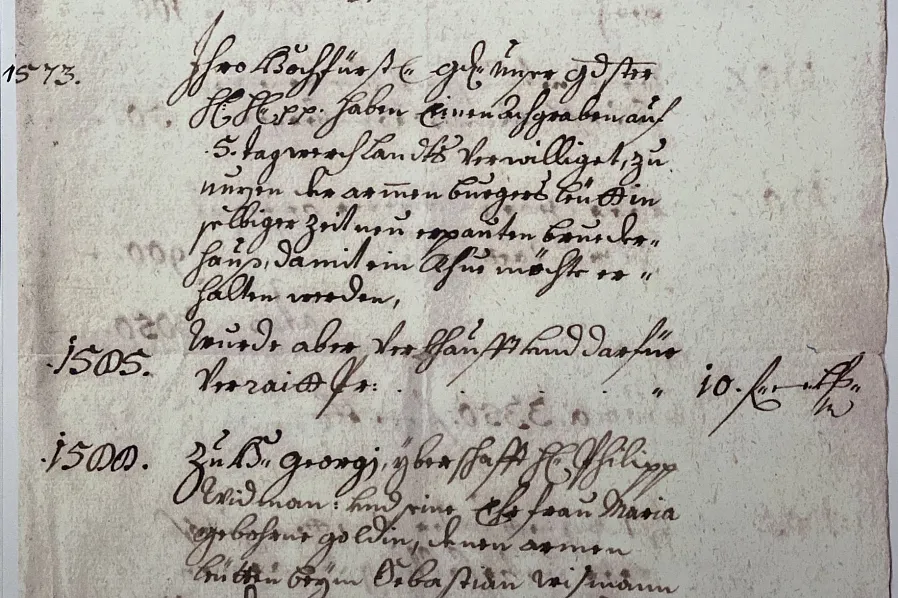 1573. Ihro Hochfürstl: gd: Unser gdster
H: H: pp: haben Einen Achgraben, auf
5. tagwerch landts verwilliget, zu
nuzen der armen burgers leüth in
selbiger Zeit neu erpauten brueder-
haus, damit ein Khue möchte er-
halten werden,
1585. Wurde aber verkhaufft und darfür
verraitt Pr: . . . " 10. f
1588. Zu St: Georgj, yberschafft H: Philipp
Widman: und seine Ehefrau Maria
gebohrne goldin, denen armen
leütten beÿm Sebastian Wismann